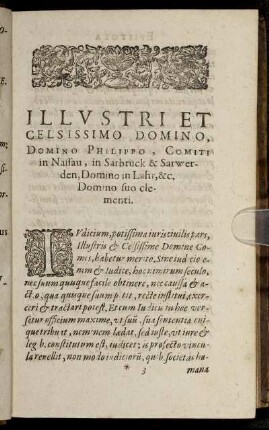 ILLVSTRI ET
CELSISSIMO DOMINO,
DOMINO PHILIPPO, COMITI
in Nassau, in Sarbruck & Sarwer-
den, Domino in Lahr, &c.
Domino suo cle-
menti.
IVdicium, potissima iuris civilis pars,
Illustris & Celsissime Domine Co-
mes, habetur merito. Sine iudicio e-
nim & iudice, hoc nimirum seculo,
nec suum quisque facile obtinere, nec causa & a-
ct.o, quæ quisque sumpsit, recte institui, exer-
ceri & tractari potest. Et cum Iudicis in hoc ver-
setur officium maxime, vt suū, sua sententia cui-
que tribuat, neminem lædat, sed iuste, vt iure &
leg.b. constitutum est, iudicet: is profecto vincu-
la revellit, non modo iudiciorū, quib. societas hu-
* 3 mana